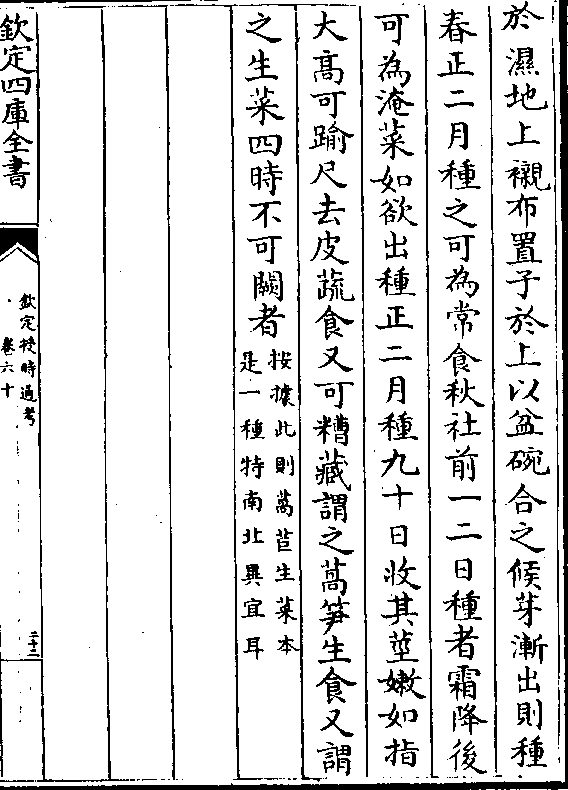 於濕地上襯布置子於上以盆碗合之候芽漸出則種
春正二月種之可為常食秋社前一二日種者霜降後
可為淹菜如欲出種正二月種九十日收其莖嫩如指
大高可踰尺去皮蔬食又可糟藏謂之萵笋生食又謂
之生菜四時不可闕者
按據此則萵苣生菜本
是一種特南北異宜耳
欽定四庫全書
欽定授時通考
卷六十
二十二